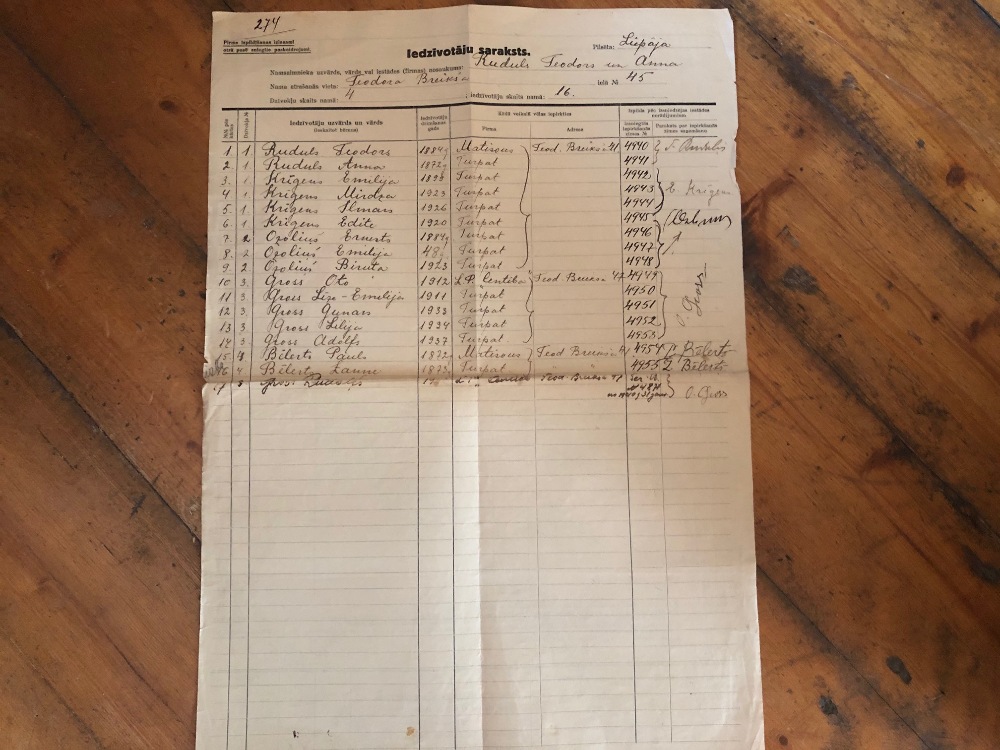 274
Pirms izpildīšanas izlasāt
otrā pusē sniegtos paskaidrojumus.
Iedzīvotāju saraksts.
Pilsēta: Liepāja
Namsaimnieka uzvārds, vārds vai iestādes (firmas) nosaukums: Ruduls Teodors un Anna
Nama atrašanās vieta: Teodora Breikša ielā № 45
Dzīvokļu skaits namā: 4 ; iedzīvotāju skaits namā: 16.
Dzīvokļa №
Iedzīvotāju uzvārds un vārds
(ieskaitot bērnus)
Iedzīvotāju dzimšanas gads
Firma
Adrese
1. 1 Ruduls Teodors 1884 Matisons Teod. Breikša 41 4940
2. 1 Ruduls Anna 1872 Turpat 4941
3. 1 Krīgens Emilija Turpat 4942
4 1 Krīgens Mirdza 1923 Turpat 4943 E. Krīgens
5. 1 Krīgens Ilmars 1926 Turpat 4944
6. 1 Krīgens Edite 1920 Turpat 4945
7. 2 Ozoliņš Ernests 1884 Turpat 4946
8. 2 Ozoliņš Emilija Turpat 4947
9. 2 Ozoliņš Biruta 1923 Turpat 4948
10 3. Gross Oto 1912 Teod Breikša 4949
11 3. Gross Lize-Emilija 1911 Turpat 4950 O. Gross
12 3. Gross Gunars 1933 Turpat 4951
13 3. Gross Lilija 1934 Turpat 4952
14 3. Gross Adolfs 1937 Turpat 4953
15 4 Bēlerts Pauls 1872 Matisons Teod Breikša 41 4954 Bēlerts
16 4 Bēlerts Zanne 1873 Turpat 4955 Z Bēlerts
Gross Teod. Breikša 41 O. Gross